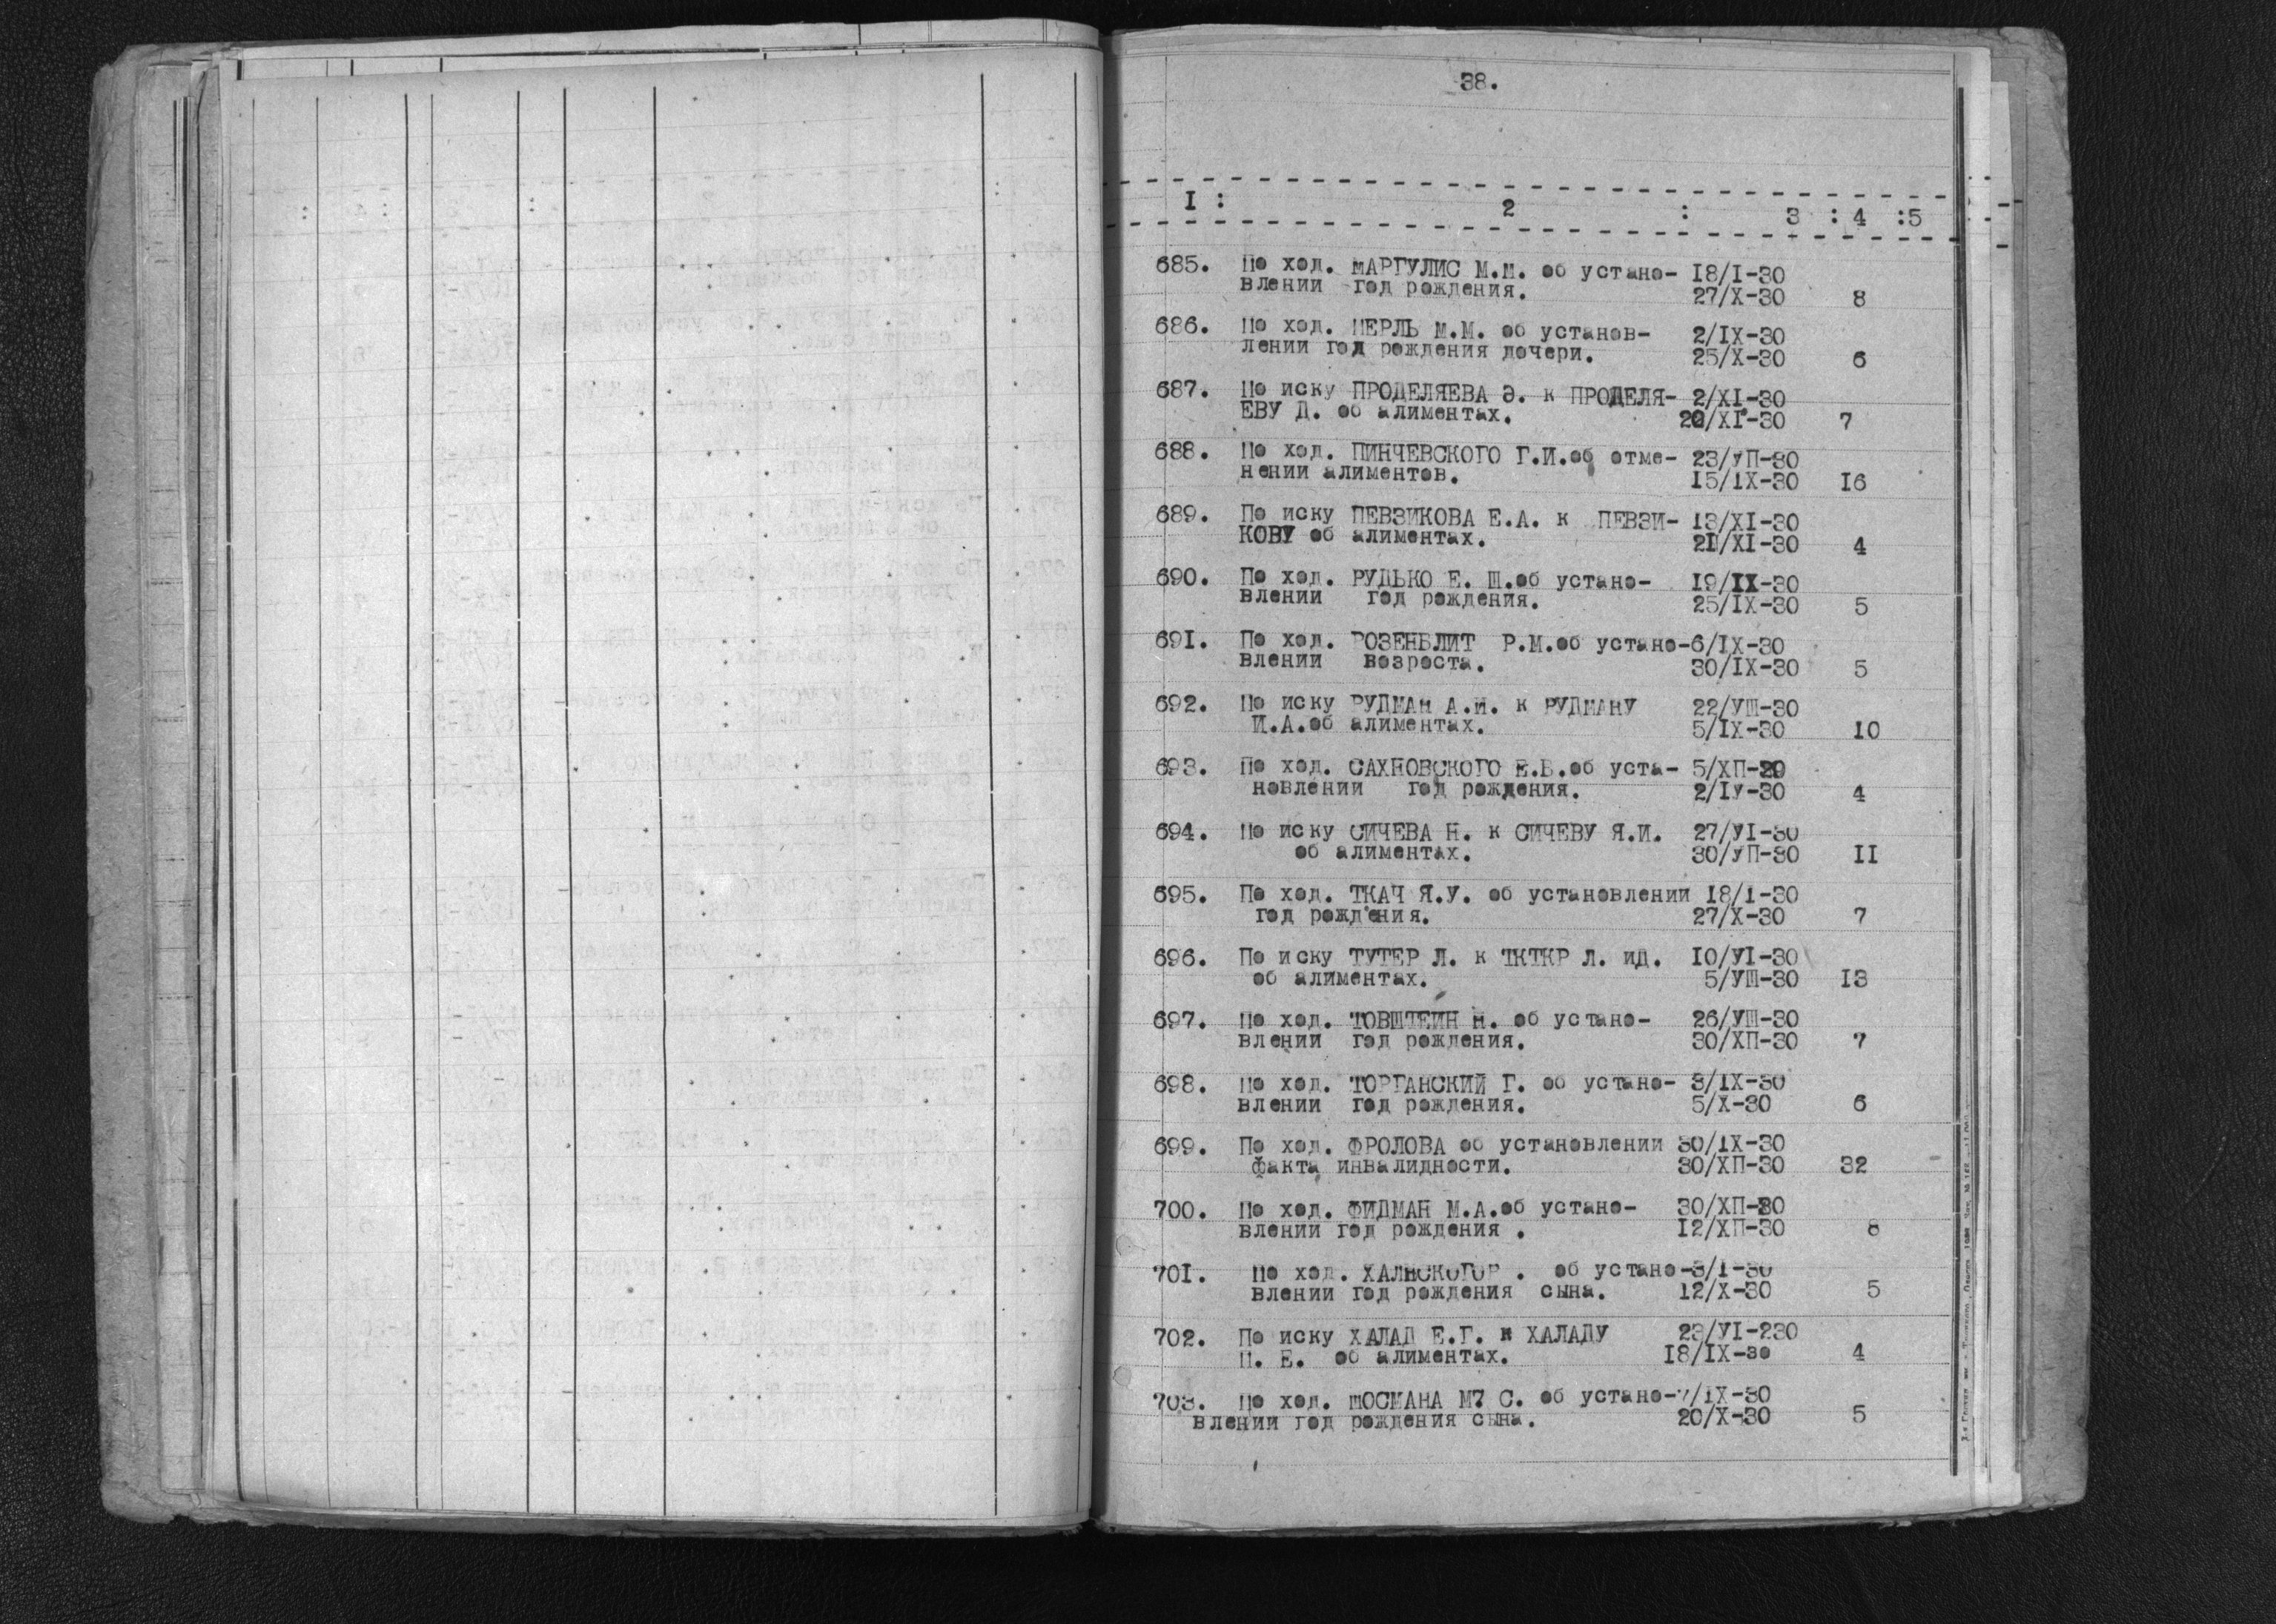 38.
I : 2 : 3 : 4 :5
685. По ход. МАРГУЛИС М.М. об устано- I8/I-30
влении год рождения. 27/X-30 8
686. По ход. МЕРЛЬ М.М. об установ- 2/IX-30
лении год рождения дочери. 25/X-30 6
687. По иску ПРОДЕЛЯЕВА Э. к ПРОДЕЛЯ- 2/XI-30
ЕВУ Д. об алиментах. 20/XI-30 7
688. По ход. ПИНЧЕВСКОГО Г.И.об отме- 23/УП-30
нении алиментов. I5/IX-30 I6
689. По иску ПЕВЗИКОВА Е.А. к ПЕВЗИ- I3/XI-30
КОВУ об алиментах. 2I/XI-30 4
690. По ход. РУДЬКО Е. Ш.об устано- I9/IX-30
влении год рождения. 25/IX-30 5
69I. По ход. РОЗЕНБЛИТ Р.М.об устано-6/IX-30
влении возроста. 30/IX-30 5
692. По иску РУДМАН А.И. к РУДМАНУ 22/УШ-30
И.А.об алиментах. 5/IX-30 I0
693. По ход. САХНОВСКОГО Е.В.об уста- 5/ХП-29
новлении год рождения. 2/IУ-30 4
694. По иску СИЧЕВА Н. к СИЧЕВУ Я.И. 27/УI-30
об алиментах. 30/УП-30 II
695. По ход. ТКАЧ Я.У. об установлении I8/I-30
год рождения. 27/X-30 7
696. По иску ТУТЕР Л. к ТКТКР Л. ИД. I0/УI-30
об алиментах. 5/УШ-30 I3
697. По ход. ТОВШТЕИН Н. об устано- 26/УШ-30
влении год рождения. 30/ХП-30 7
698. По ход. ТОРГАНСКИЙ Г. об устано- 3/IX-30
влении год рождения. 5/X-30 6
699. По ход. ФРОЛОВА об установлении 30/IX-30
факта инвалидности. 30/ХП-30 32
700. По ход. ФИДМАН М.А.об устано- 30/ХП-30
влении год рождения . I2/ХП-30 8
70I. По ход. ХАЛЕСКОГОР . об устано-3/I-30
влении год рождения сына. I2/X-30 5
702. По иску ХАЛАД Е.Г. к ХАЛАДУ 23/УI-230
П. Е. об алиментах. I8/IX-30 4
703. По ход. ШОСМАНА М7 С. об устано-7/IX-30
влении год рождения сына. 20/X-30 5